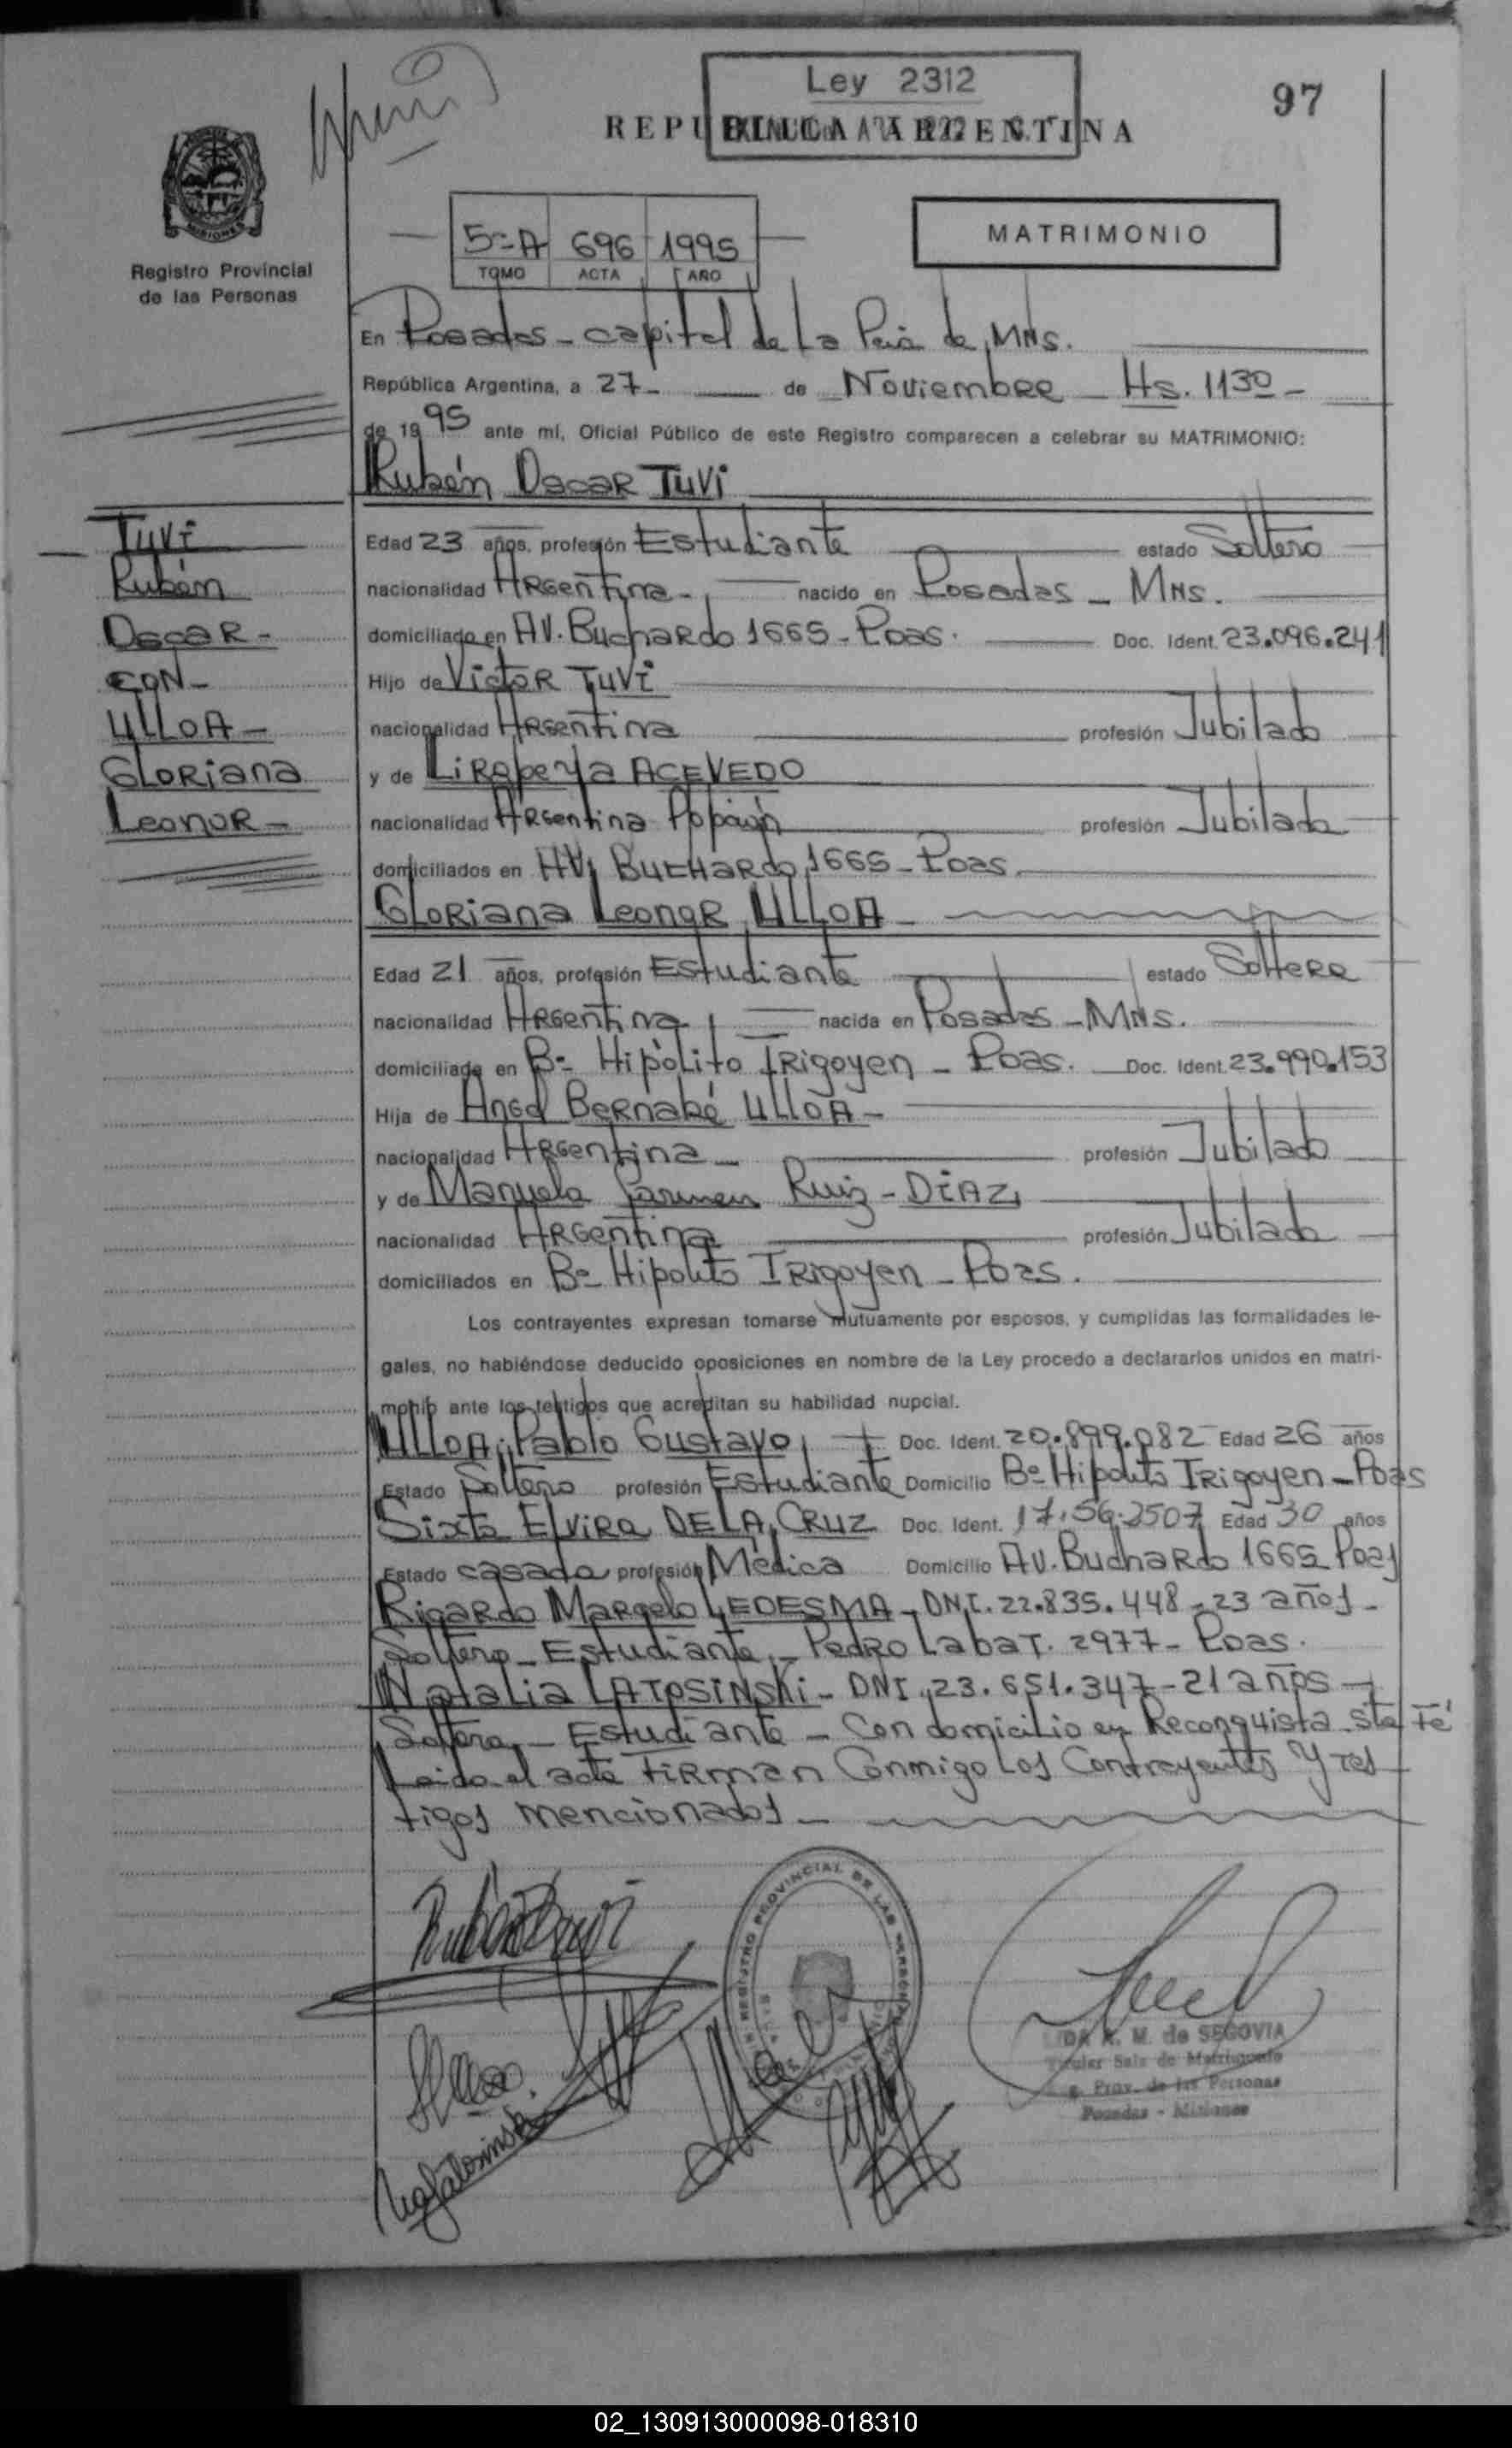 Ley 2312
97
REPUBLICA ARGENTINA
MISIONES
Registro Provincial
de las Personas
5-A 696 1995
TOMO ACTA AÑO
MATRIMONIO
En Posadas - capital de La Pcia de MNS.
República Argentina, a 27- de Noviembre Hs. 1130-
de 1995 ante mí, Oficial Público de este Registro comparecen a celebrar su MATRIMONIO:
Rubén Oscar TUVI
Tuvi
Rubén
Oscar -
CON -
ULLOA -
Gloriana
Leonor -
Edad 23 años, profesión Estudiante estado Soltero
nacionalidad Argentina - nacido en Posadas - MNS.
domiciliado en AV. Buchardo 1665 - Poas. Doc. Ident. 23.096.241
Hijo de Victor TUVI
nacionalidad Argentina profesión Jubilado
y de Liropeya ACEVEDO
nacionalidad Argentina profesión Jubilada
domiciliados en AV. BUCHARDO 1665 - Poas.
Gloriana Leonor ULLOA -
Edad 21 años, profesión Estudiante estado Soltera
nacionalidad Argentina nacida en Posadas - MNS.
domiciliada en Bº Hipólito Irigoyen - Poas. Doc. Ident. 23.990.153
Hija de Angel Bernabé ULLOA -
nacionalidad Argentina - profesión Jubilado
y de Manuela Carmen Ruiz - DIAZ
nacionalidad Argentina profesión Jubilada
domiciliados en Bº Hipolito Irigoyen - Poas.
Los contrayentes expresan tomarse mutuamente por esposos, y cumplidas las formalidades le-
gales, no habiéndose deducido oposiciones en nombre de la Ley procedo a declararlos unidos en matri-
monio ante los testigos que acreditan su habilidad nupcial.
ULLOA, Pablo Gustavo Doc. Ident. 20.899.082 Edad 26 años
Estado Soltero profesión Estudiante Domicilio Bº Hipolito Irigoyen - Poas
Sixta Elvira DE LA CRUZ Doc. Ident. 17.56.2507 Edad 30 años
Estado casada profesión Médica Domicilio AV. Buchardo 1665 Poas
Ricardo Marcelo LEDESMA - DNI. 22.835.448 - 23 años -
Soltero - Estudiante - Pedro Labat. 2977 - Poas.
Natalia LATOSINSKI - DNI 23.651.347 - 21 años -
Soltera - Estudiante - Con domicilio en Reconquista Sta Fé
Leida el acta firman conmigo los contrayentes y tes
tigos mencionados -
REGISTRO PROVINCIAL DE LAS PERSONAS
M. de SEGOVIA
Titular Sala de Matrimonio
Prov. de las Personas
Posadas - Misiones
02_130913000098-018310